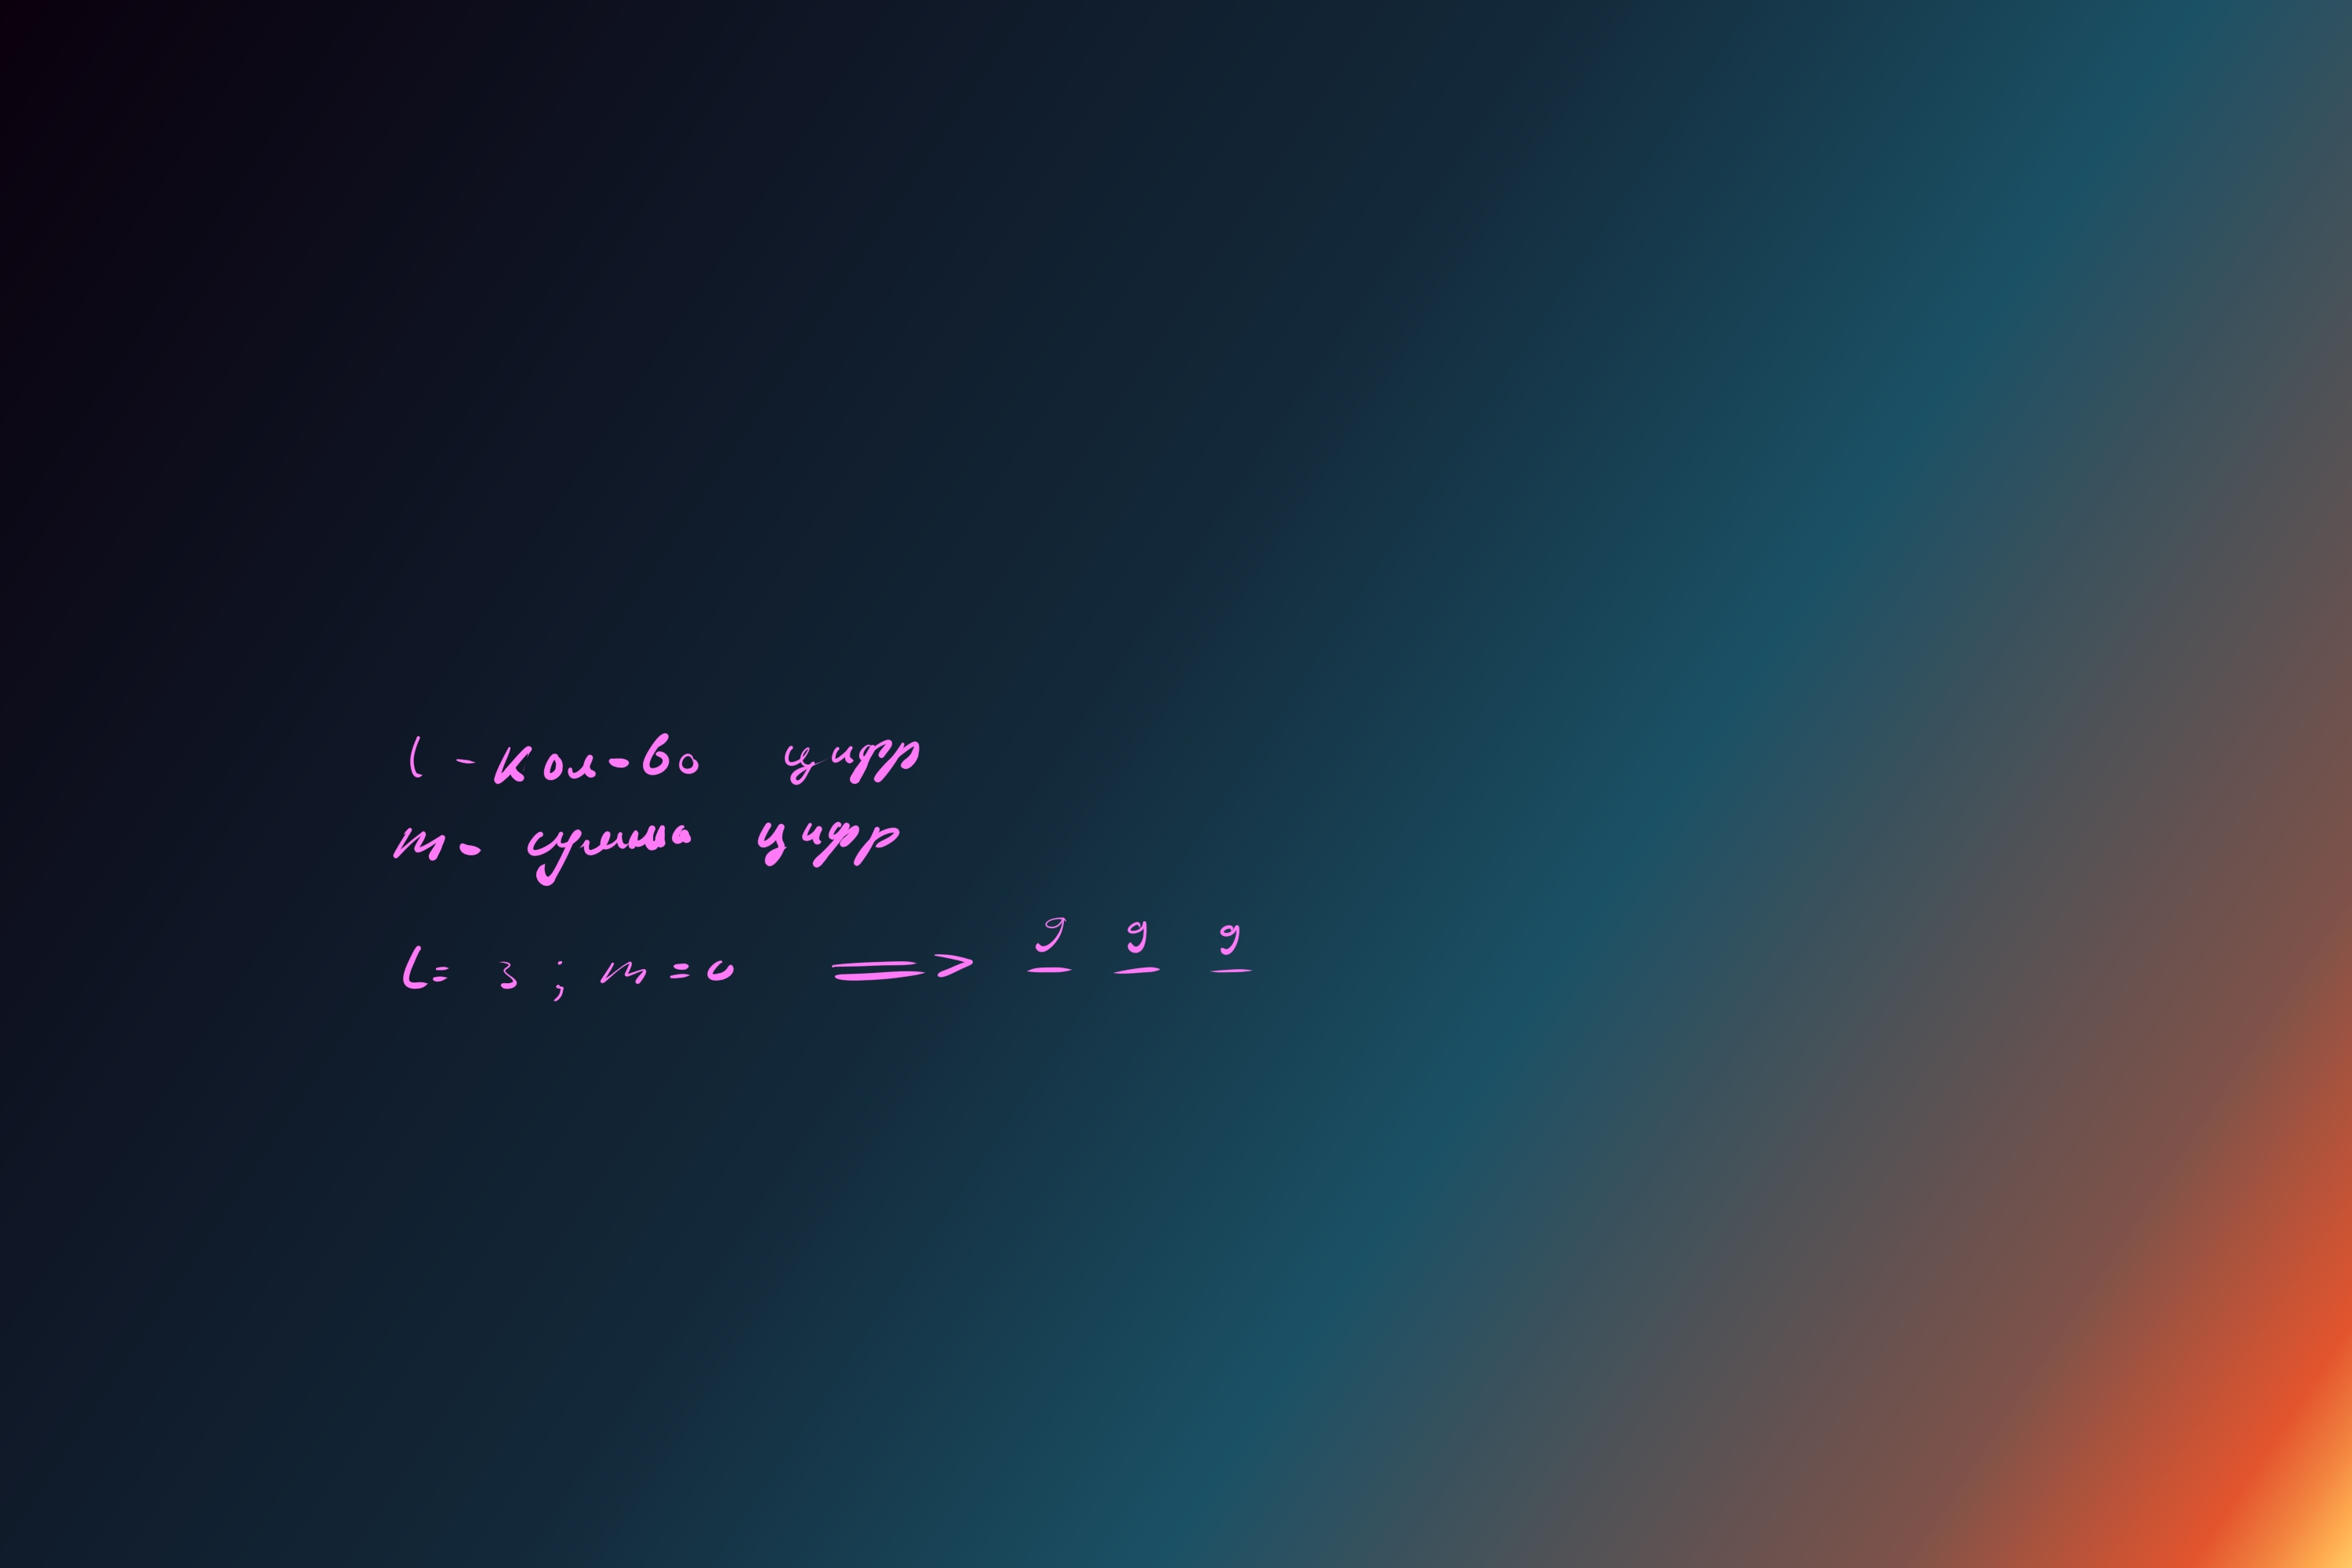 l - кол-во цифр
m - сумма цифр
l = 3 ; m = 0 => 9 9 9